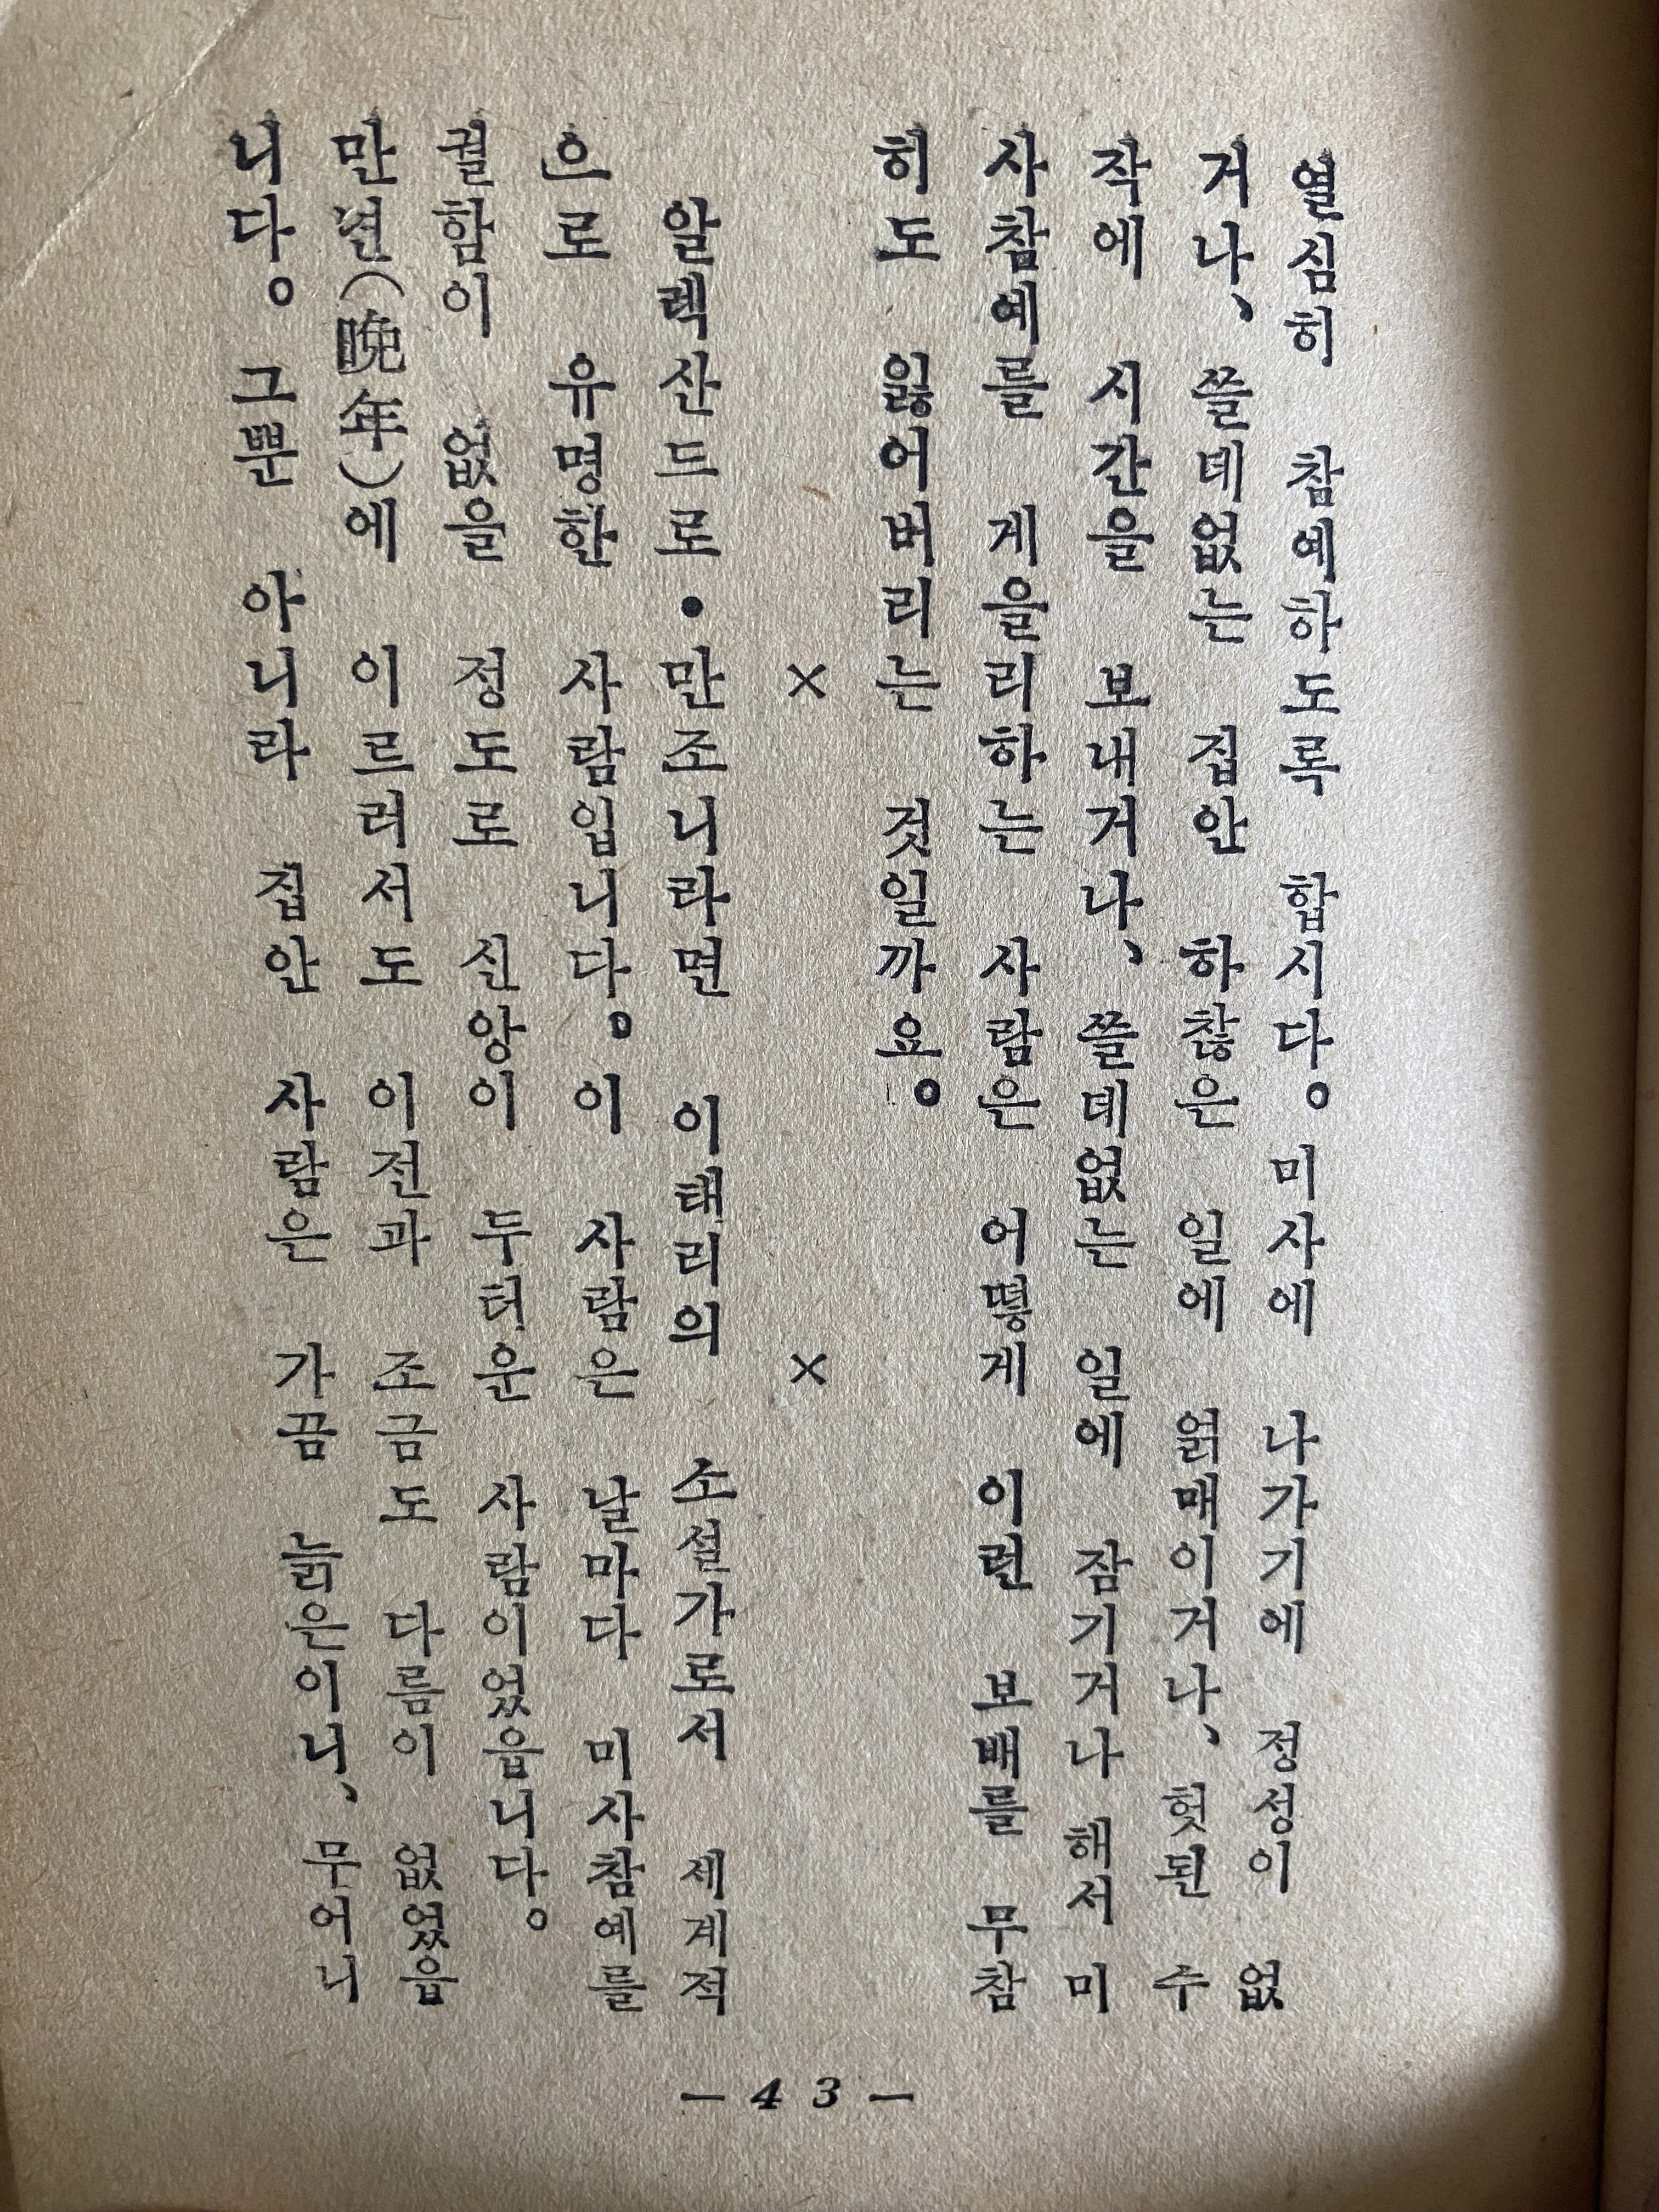 열심히 참예하도록 합시다。 미사에 나가기에 정성이 없
거나、 쓸데없는 집안 하찮은 일에 얽매이거나、 헛된 수
작에 시간을 보내거나、 쓸데없는 일에 잠기거나 해서 미
사참예를 게을리하는 사람은 어떻게 이런 보배를 무참
히도 잃어버리는 것일까요。
× ×
알렉산드로•만조니라면 이태리의 소설가로서 세계적
으로 유명한 사람입니다。 이 사람은 날마다 미사참예를
궐함이 없을 정도로 신앙이 두터운 사람이었읍니다。
만년(晩年)에 이르러서도 이전과 조금도 다름이 없었읍
니다。 그뿐 아니라 집안 사람은 가끔 늙은이니、 무어니
— 43 —